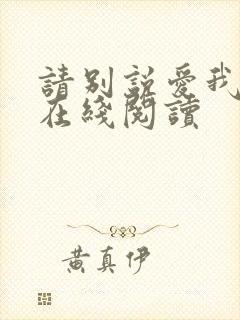 請別說愛我
在綫閱讀
黃真伊